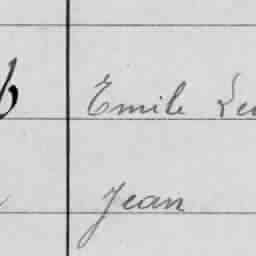 Emile
Jean